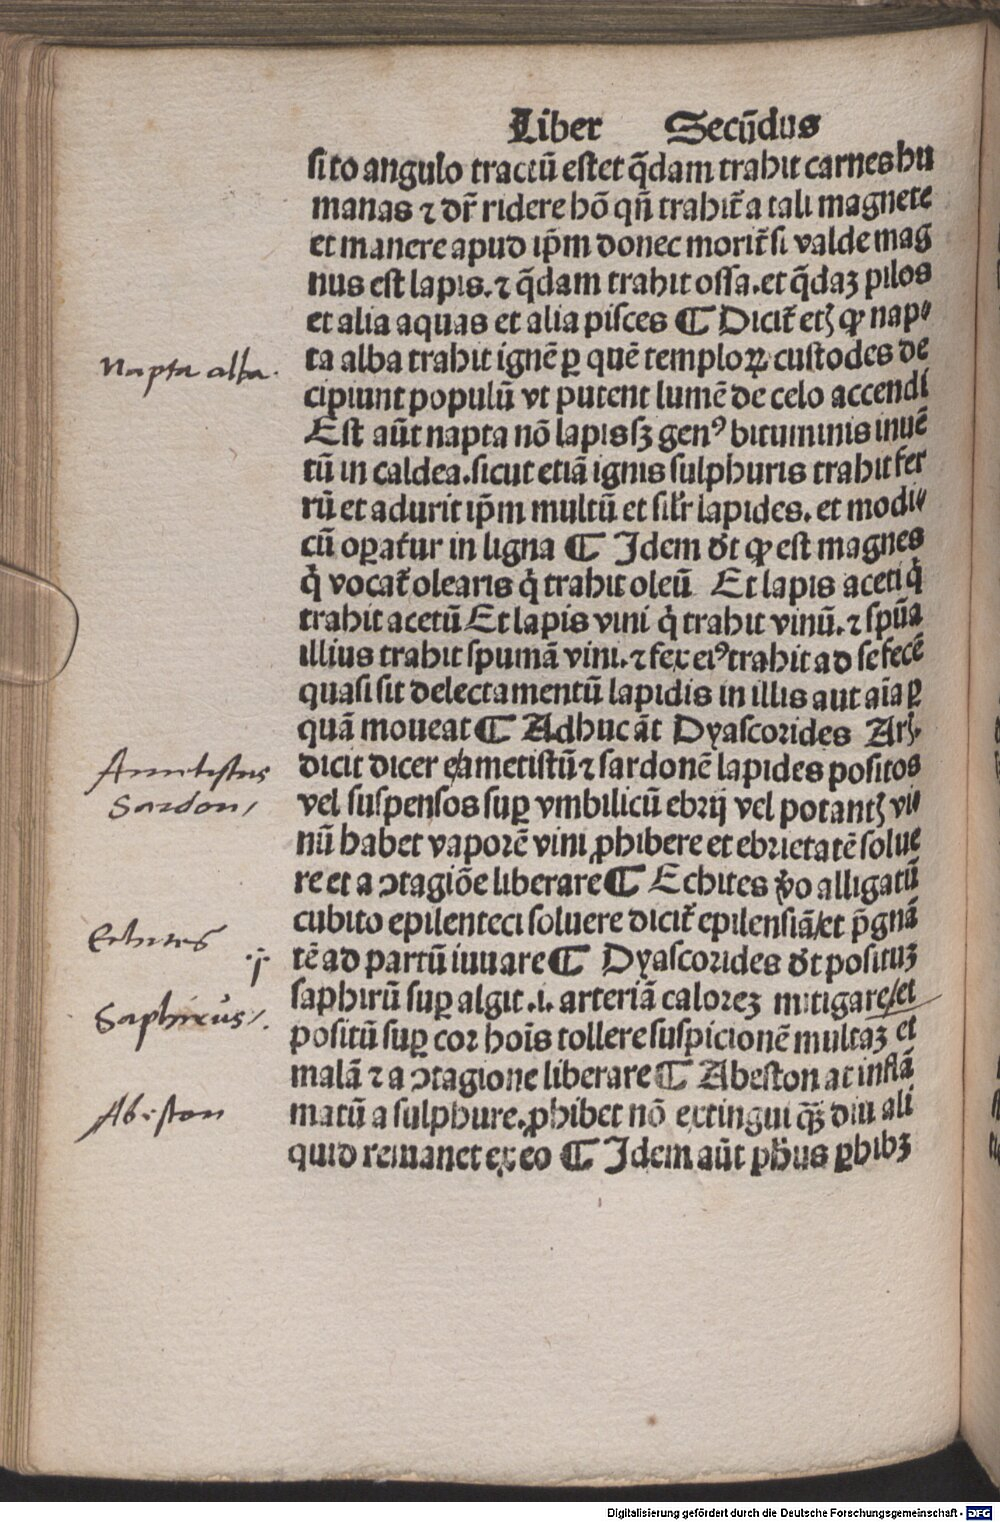 Liber Secūdus
si to angulo tractū est et q̄dam trahit carnes hu
manas ⁊ dr̄ ridere hō qn̄ trahit̄ a tali magnete
et manere apud ip̄m donec morit̄ si valde mag
nus est lapis. ⁊ q̄dam trahit ossa. et q̄daꝫ pilos
et alia aquas et alia pisces ¶ Dicit̄ etꝫ ꝙ nap⸗
Napta alba.
ta alba trahit ignē ꝑ quē temploꝝ custodes de
cipiunt populū vt putent lumē de celo accendi
Est aūt napta nō lapis sꝫ genꝰ bituminis inuē
tū in caldea. sicut etiā ignis sulphuris trahit fer
rū et adurit ip̄m multū et silr̄ lapides. et modi⸗
cū oꝑat̄ur in ligna ¶ Idem dt̄ ꝙ est magnes
q̇ vocat̄ olearis q̇ trahit oleū Et lapis aceti q̇
trahit acetū Et lapis vini q̇ trahit vinū. ⁊ spūa
illius trahit spumā vini. ⁊ fex eiꝰ trahit ad se fecē
quasi sit delectamentū lapidis in illis aut aīa ꝑ
quā moueat ¶ Adhuc āt Dyascorides Arꝫ.
Amatistus
dicit dicer e/ametistū ⁊ sardonē lapides positos
Sardon/
vel suspensos suꝑ vmbilicū ebrij vel potantꝫ vi⸗
nū habet vaporē vini ꝓhibere et ebrietatē solue
re et a ꝯtagiōe liberare ¶ Echites ꝟo alligatū
cubito epilenteci soluere dicit̄ epilensiā/et p̄gnā
Echites
tē ad partū iuuare ¶ Dyascorides dt̄ posituꝫ
Saphirus/.
saphirū suꝑ algit .i. arteriā caloreꝫ mitigare/et
positū suꝑ cor hoīs tollere suspicionē multaꝫ et
malā ⁊ a ꝯtagione liberare ¶ Abeston at inflā
Abeston
matū a sulphure. ꝓhibet nō extingui qꝫ diu ali
quid remanet ex eo ¶ Idem aūt ph̄us ꝑhibꝫ
Digitalisierung gefördert durch die Deutsche Forschungsgemeinschaft - DFG